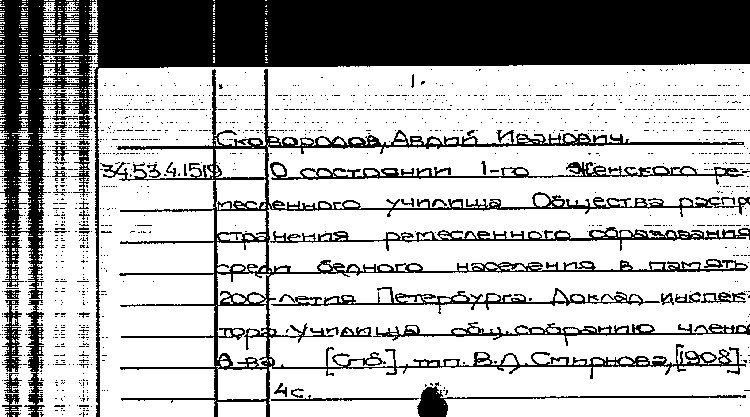 1.
Сковородов, Авдий Иванович.
34.53.4.1519 О состоянии 1-го Женского ре-
месленного училища Общества распр
странения ремесленного образования
среди бедного населения в память
200-летия Петербурга. Доклад инспек-
тора училища общ. собранию члено
О-ва. [Спб.], тип. В. Д. Смирнова, [1908].
4 с.